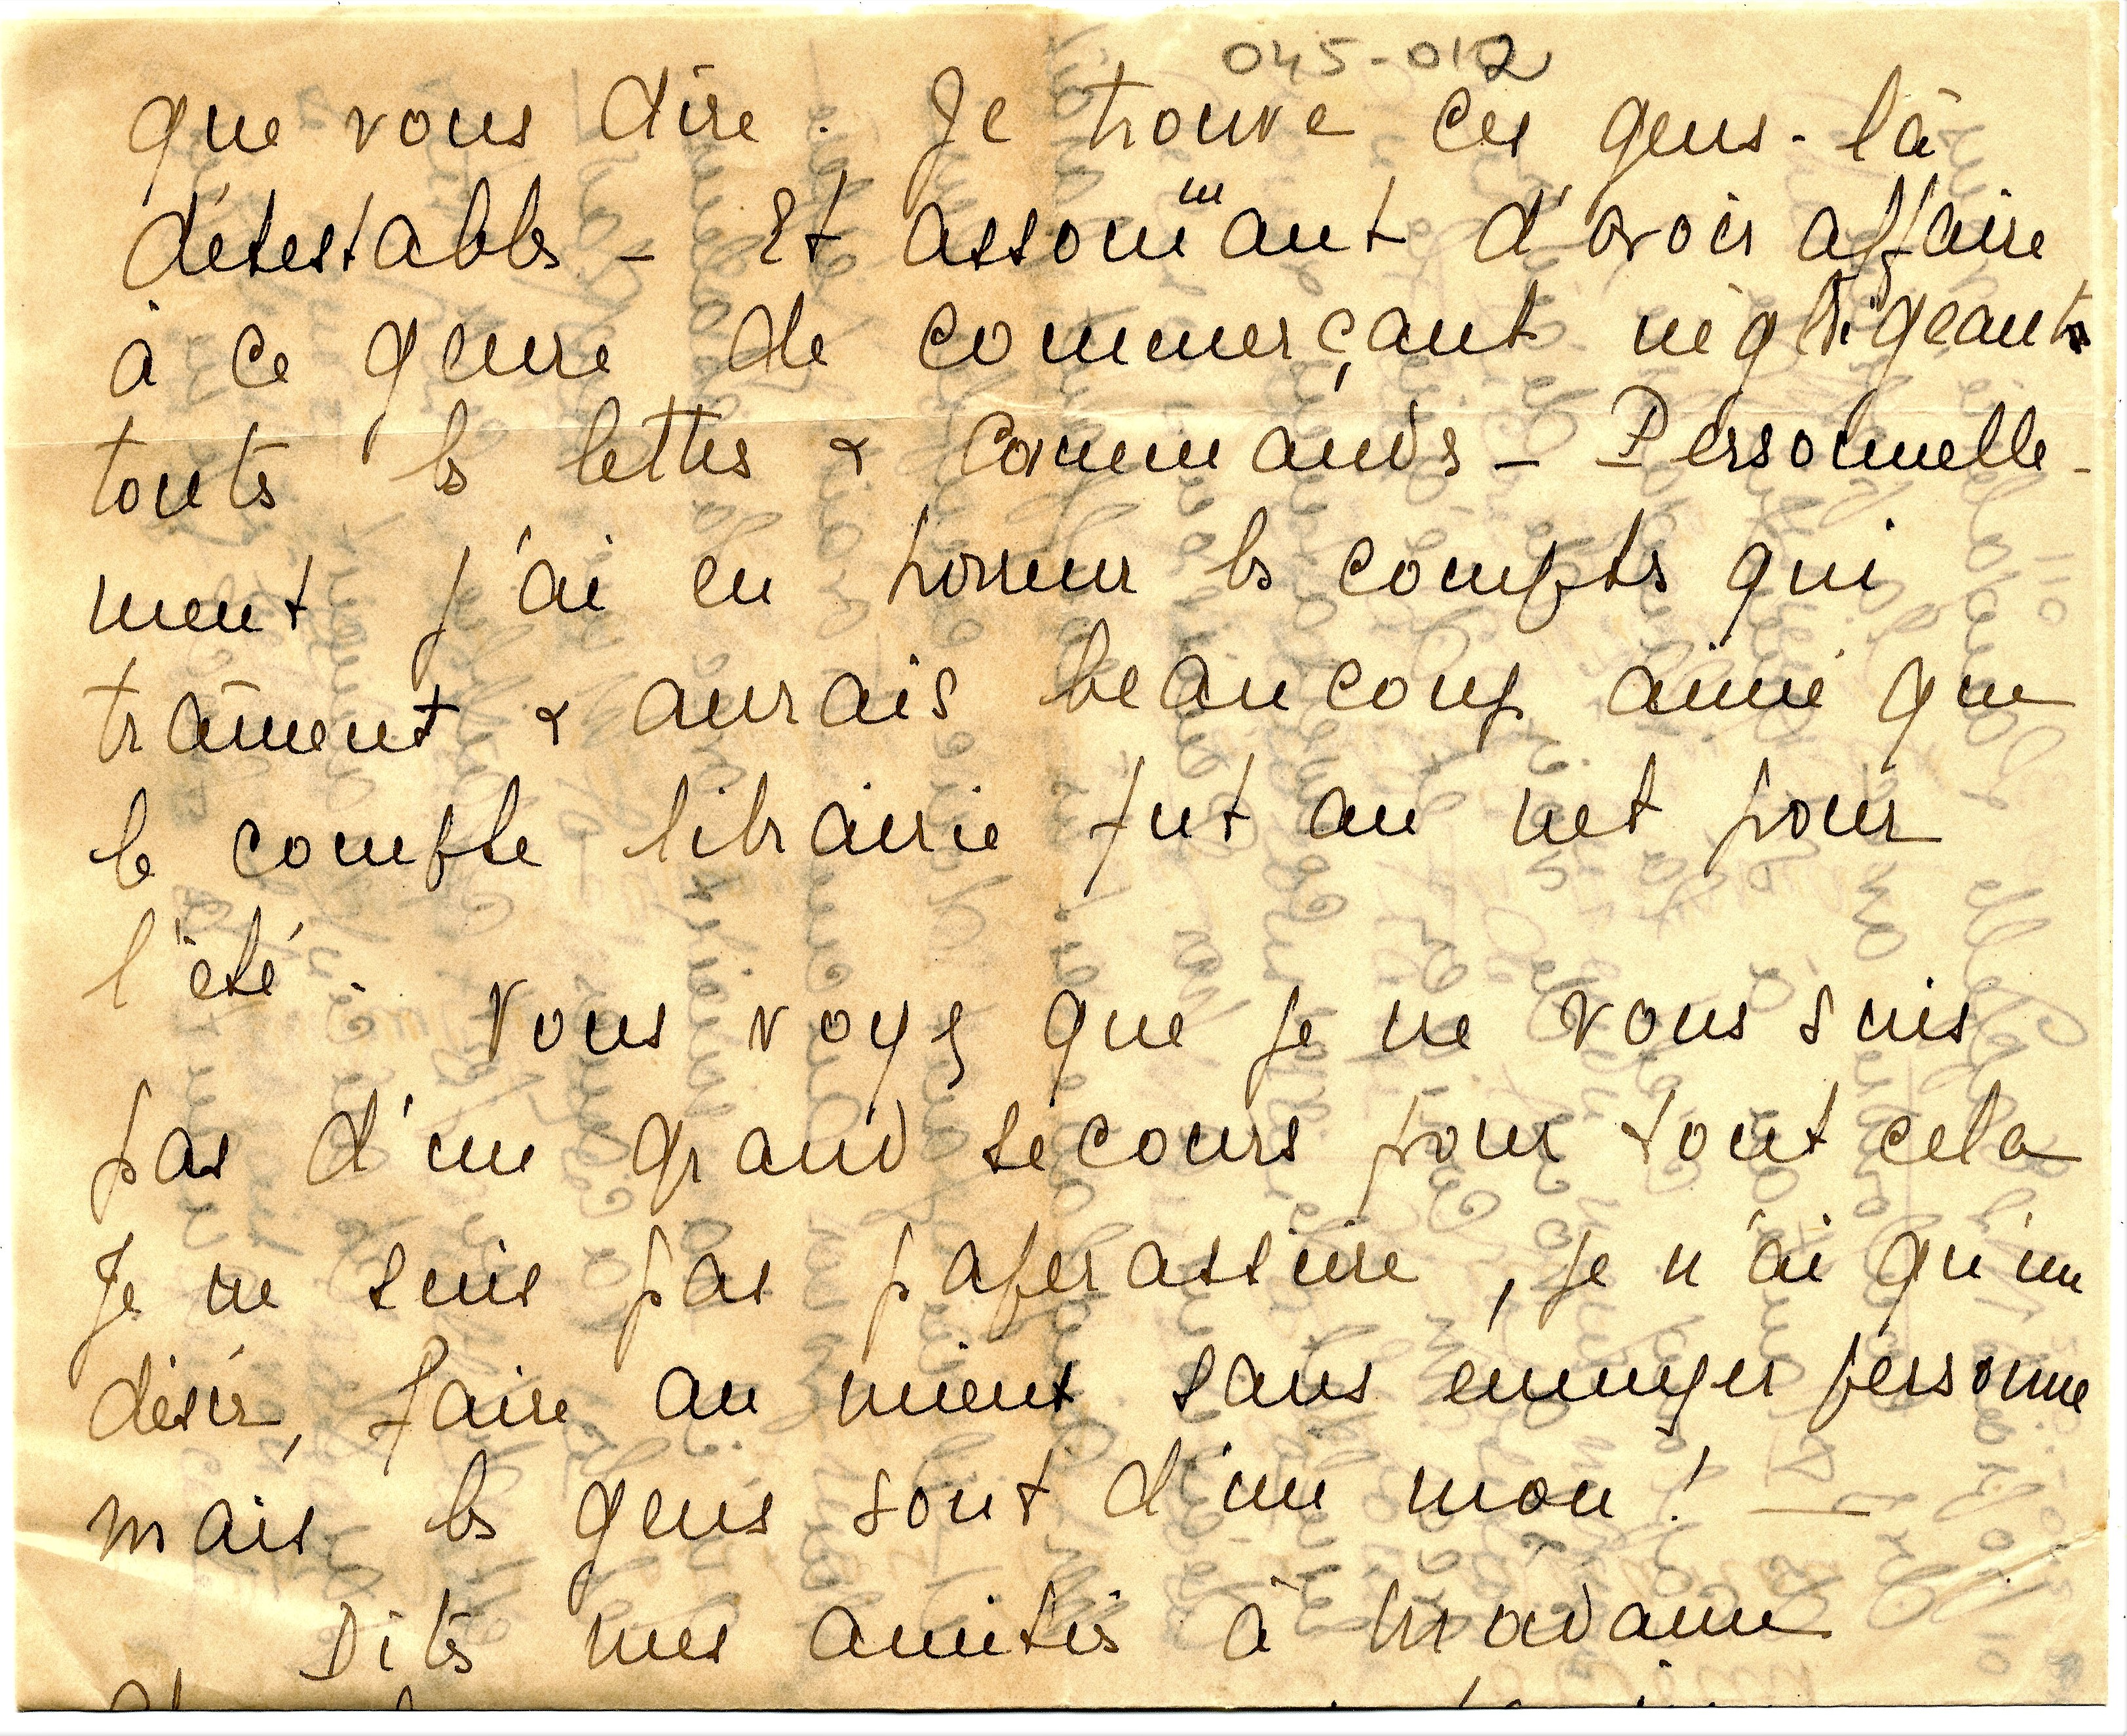 045-012
que vous dire. Je trouve ces gens-là
détestables - Et assommant d'avoir affaire
à ce genre de commerçant négligeants
toutes les lettres & commandes - Personnelle-
ment j'ai en horreur les comptes qui
traînent & aurais beaucoup aimé que
le compte librairie fut au net pour
l'été.
Vous voyez que je ne vous suis
pas d'un grand secours pour tout cela
Je ne suis pas paperassière, je n'ai qu'un
désir, faire au mieux sans ennuyer personne
mais les gens sont d'un mou! —
Dites mes amitiés à Madame